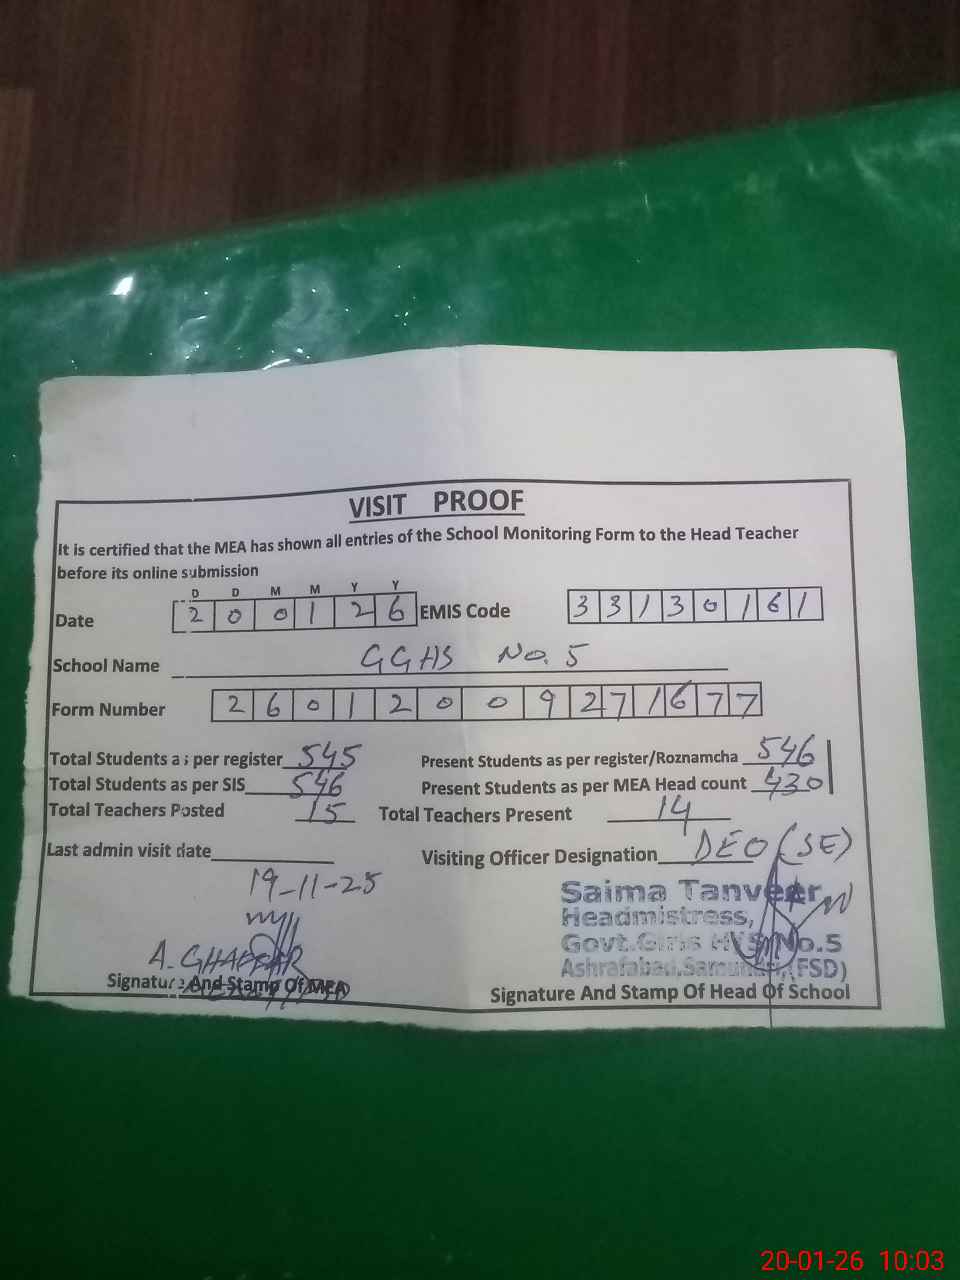 VISIT PROOF
It is certified that the MEA has shown all entries of the School Monitoring Form to the Head Teacher
before its online submission
D D M M Y Y
Date 2 0 0 1 2 6 EMIS Code 3 3 1 3 0 1 6 1
School Name GGHS No. 5
Form Number 2 6 0 1 2 0 0 9 2 7 1 6 7 7
Total Students as per register 545 Present Students as per register/Roznamcha 546
Total Students as per SIS 546 Present Students as per MEA Head count 430
Total Teachers Posted 15 Total Teachers Present 14
Last admin visit date 19-11-25 Visiting Officer Designation DEO (SE)
Saima Tanveer
Headmistress,
Govt. Girls H/S No.5
Ashrafabad, Samundri, (FSD)
A. GHAFFAR
Signature And Stamp Of MEA Signature And Stamp Of Head Of School
20-01-26 10:03